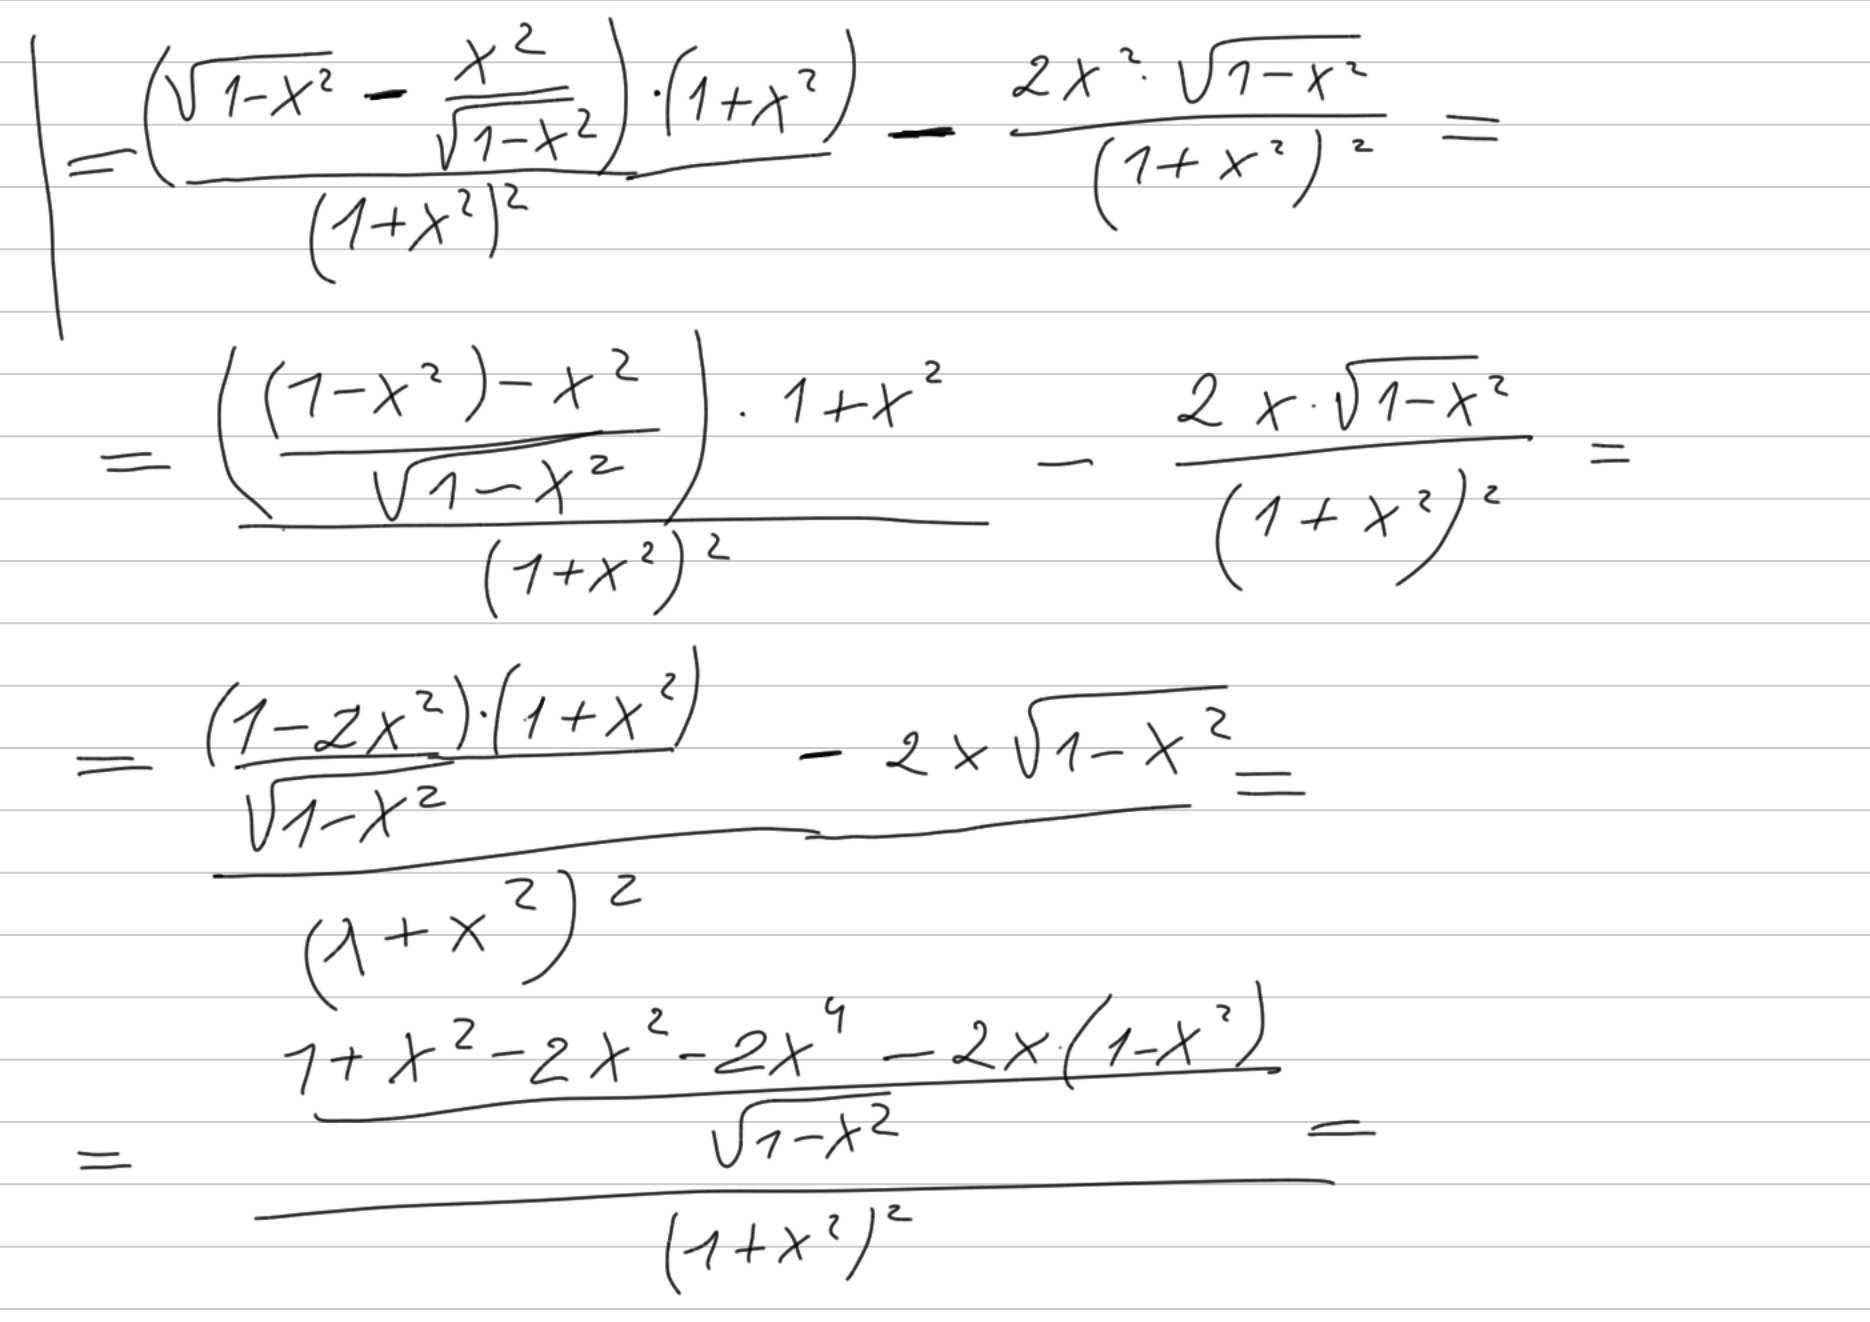 = ((√(1-x²) - x²/√(1-x²)) · (1+x²))/(1+x²)² - (2x² · √(1-x²))/(1+x²)² =
= ((((1-x²) - x²)/√(1-x²)) · 1+x²)/(1+x²)² - (2x · √(1-x²))/(1+x²)² =
= (((1-2x²) · (1+x²))/√(1-x²) - 2x√(1-x²))/(1+x²)² =
= ((1+x²-2x²-2x⁴-2x·(1-x²))/√(1-x²))/(1+x²)² =